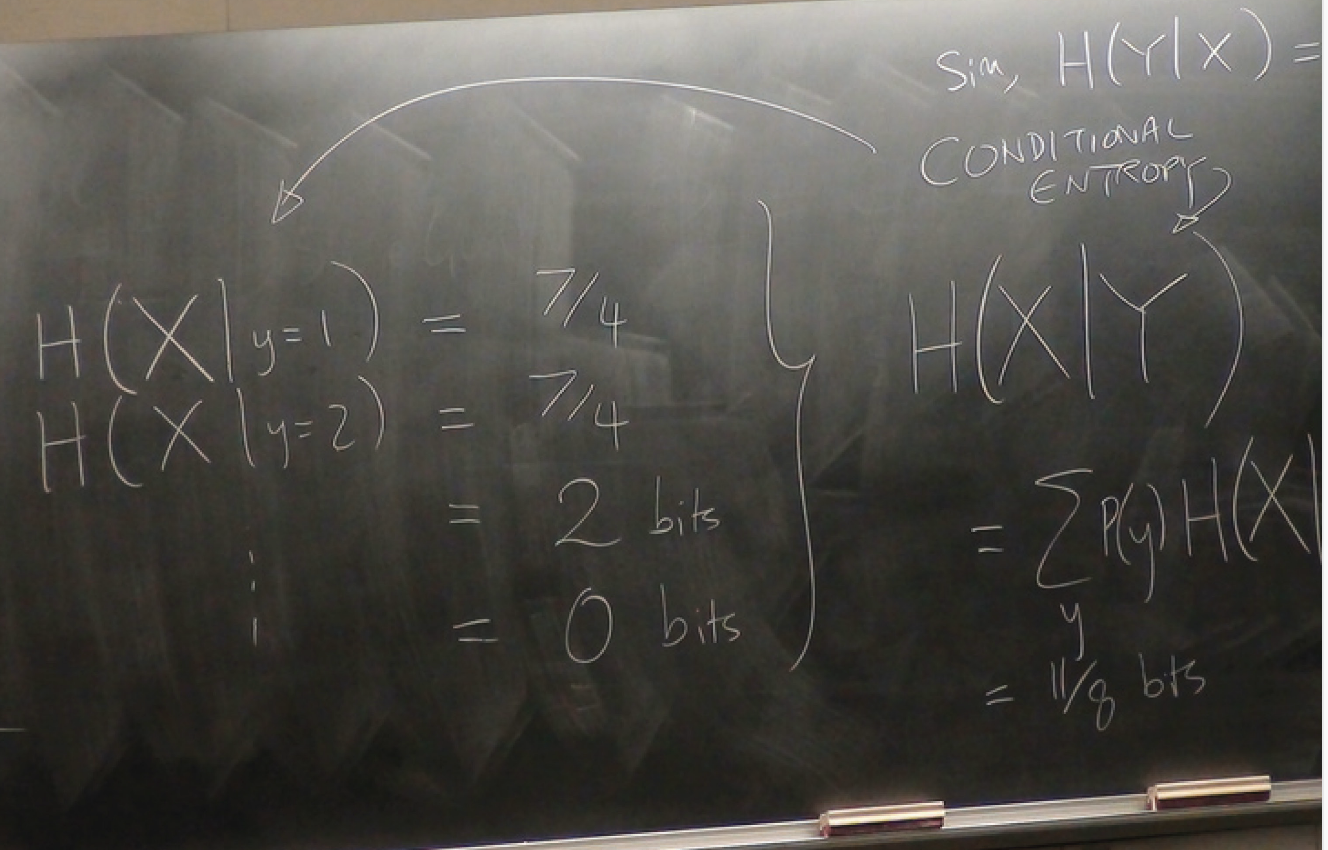 Sim, H(Y|X) =
CONDITIONAL
ENTROPY
H(X|y=1) = 7/4
H(X|y=2) = 7/4
⋮ = 2 bits
= 0 bits
H(X|Y)
= ∑ P(y) H(X|
y
= 11/8 bits